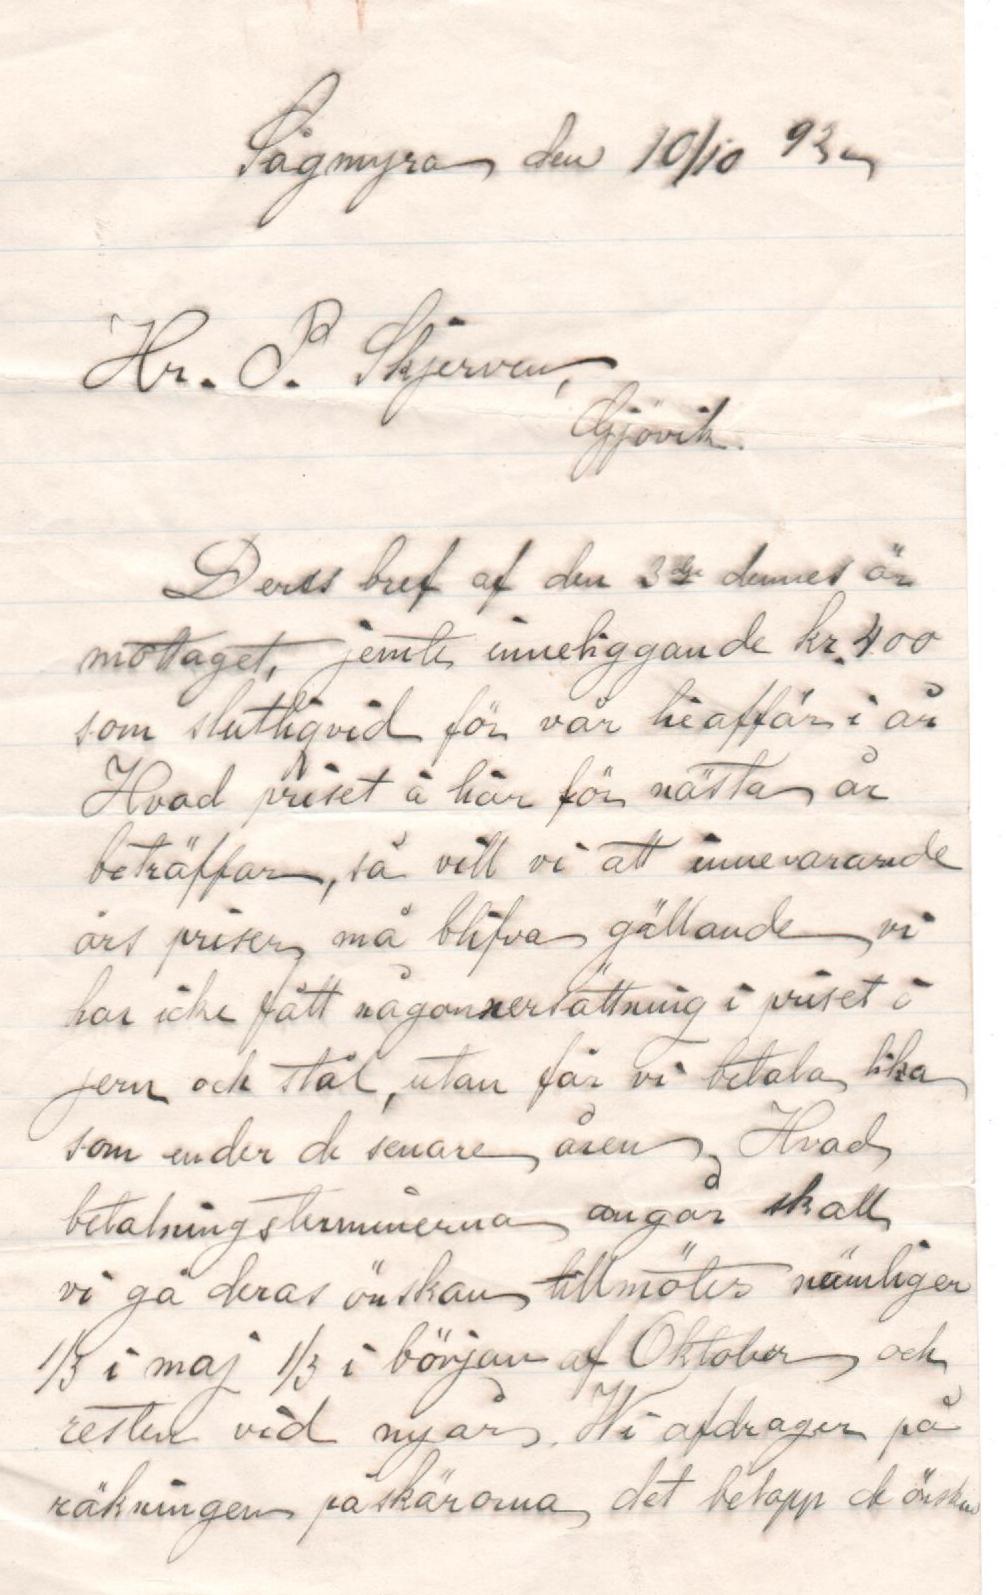 Sågmyra den 10/10 93
Hr. P. Skjerven,
Gjövik.
Ders bref af den 3dje dennes är
mottaget, jemte inneliggande kr. 400
som slutliqvid för vår lieaffär i år
Hvad priset å liar för nästa år
beträffar, så vill vi att innevarande
års priser må blifva gällande vi
har icke fått någon nersättning i priset å
jern och stål, utan får vi betala lika
som under de senare åren, Hvad
betalningsterminerna angår skall
vi gå deras önskan tillmötes nämligen
1/3 i maj 1/3 i början af Oktober och
resten vid nyår. Wi afdrager på
räkningen på skärorna det belopp de önskar